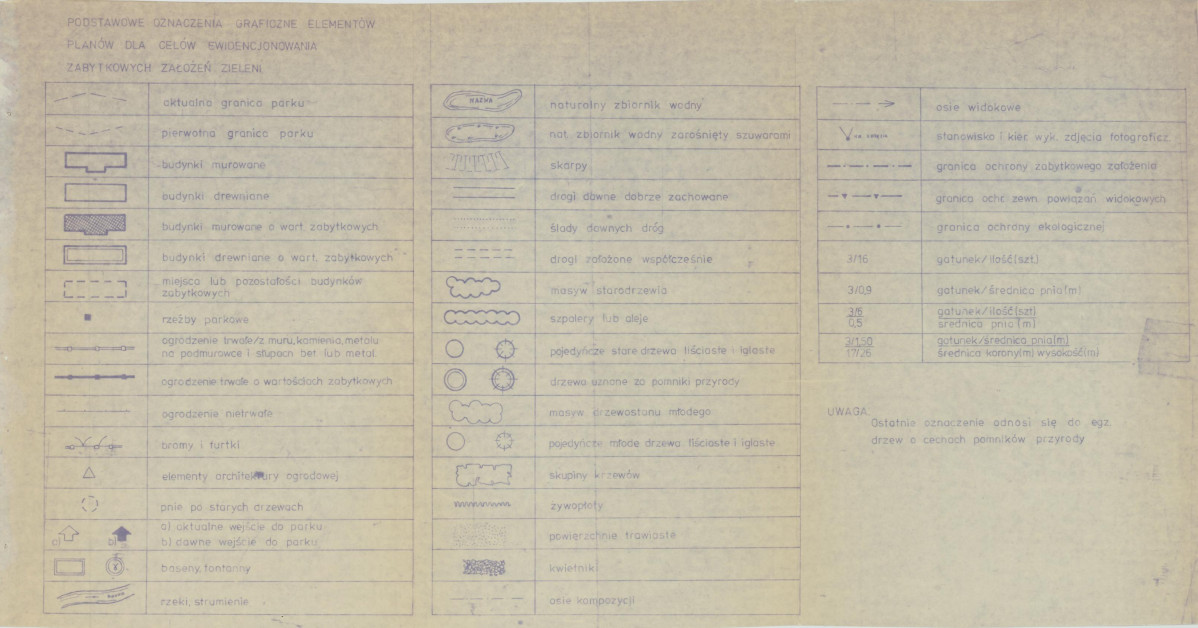 PODSTAWOWE OZNACZENIA GRAFICZNE ELEMENTÓW
PLANÓW DLA CELÓW EWIDENCJONOWANIA
ZABYTKOWYCH ZAŁOŻEŃ ZIELENI
aktualna granica parku
pierwotna granica parku
budynki murowane
budynki drewniane
budynki murowane o wart. zabytkowych
budynki drewniane o wart. zabytkowych
miejsca lub pozostałości budynków
zabytkowych
rzeźby parkowe
ogrodzenie trwałe/z muru, kamienia, metalu
na podmurówce i słupach bet. lub metal.
ogrodzenie trwałe o wartościach zabytkowych
ogrodzenie nietrwałe
bramy i furtki
elementy architektury ogrodowej
pnie po starych drzewach
a) b)
a) aktualne wejście do parku
b) dawne wejście do parku
baseny, fontanny
rzeki, strumienie
NAZWA
naturalny zbiornik wodny
nat. zbiornik wodny zarośnięty szuwarami
skarpy
drogi dawne dobrze zachowane
ślady dawnych dróg
drogi założone współcześnie
masyw starodrzewia
szpalery lub aleje
pojedyńcze stare drzewa liściaste i iglaste
drzewa uznane za pomniki przyrody
masyw drzewostanu młodego
pojedyńcze młode drzewa liściaste i iglaste
skupiny krzewów
żywopłoty
powierzchnie trawiaste
kwietniki
osie kompozycji
osie widokowe
stanowisko i kier. wyk. zdjęcia fotograficz.
granica ochrony zabytkowego założenia
granica ochr. zewn. powiązań widokowych
granica ochrony ekologicznej
3/16 gatunek/ilość(szt.)
3/0,9 gatunek/średnica pnia(m)
3/6 gatunek/ilość(szt)
0,5 średnica pnia (m)
3/1,50 gatunek/średnica pnia(m)
17/26 średnica korony(m) wysokość(m)
UWAGA:
Ostatnie oznaczenie odnosi się do egz.
drzew o cechach pomników przyrody